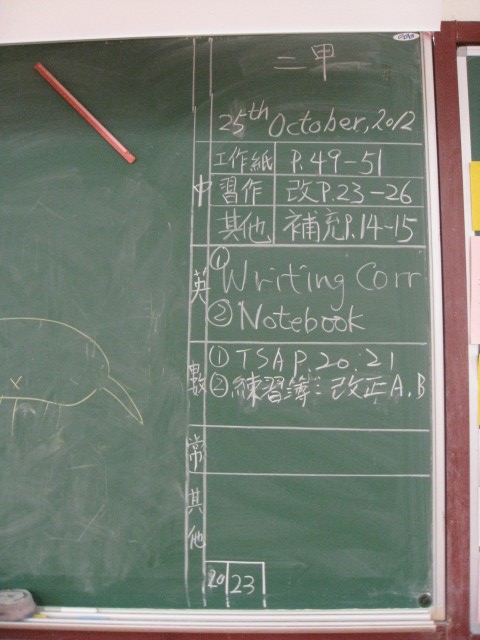 二甲
25th October, 2012
中
工作紙 P.49-51
習作 改P.23-26
其他 補充P.14-15
英
① Writing Corr
② Notebook
數
① TSA P.20.21
② 練習簿:改正A,B
常
其他
20 23